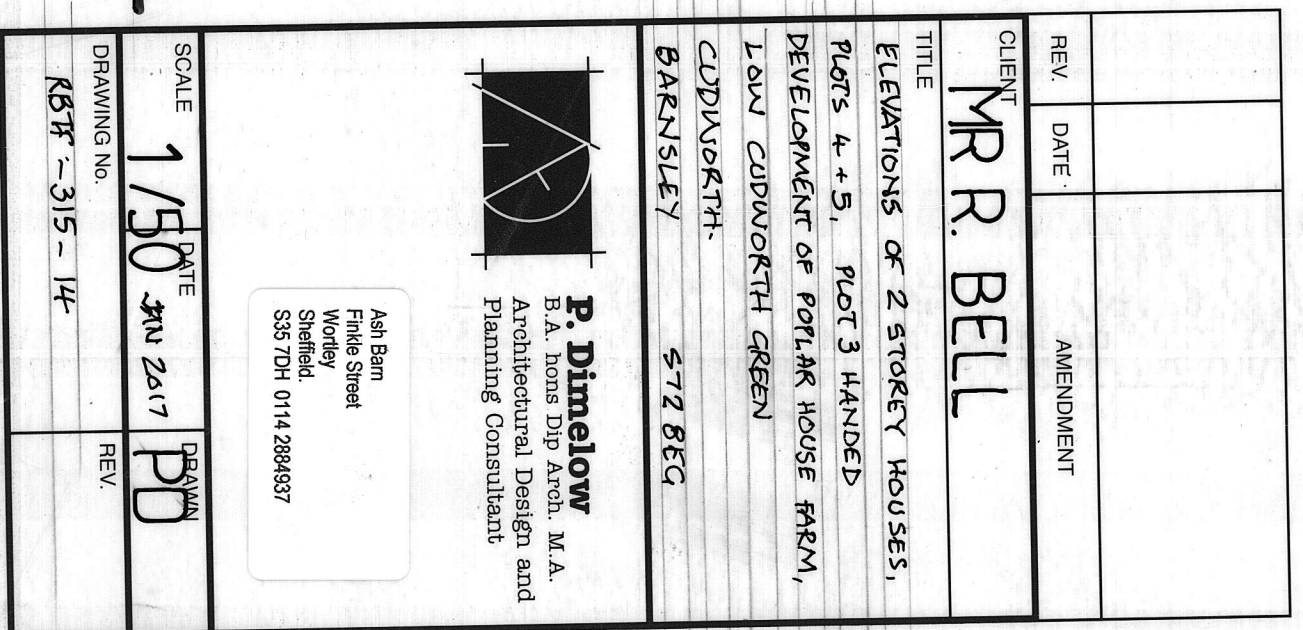 REV. DATE AMENDMENT
CLIENT
MR R. BELL
TITLE
ELEVATIONS OF 2 STOREY HOUSES,
PLOTS 4 + 5, PLOT 3 HANDED
DEVELOPMENT OF POPLAR HOUSE FARM,
LOW CUDWORTH GREEN
CUDWORTH
BARNSLEY S72 8EG
P. Dimelow
B.A. hons Dip Arch. M.A.
Architectural Design and
Planning Consultant
Ash Barn
Finkle Street
Wortley
Sheffield.
S35 7DH 0114 2884937
SCALE DATE DRAWN
1/50 JAN 2017 PD
DRAWING No. REV.
RBTF-315-14